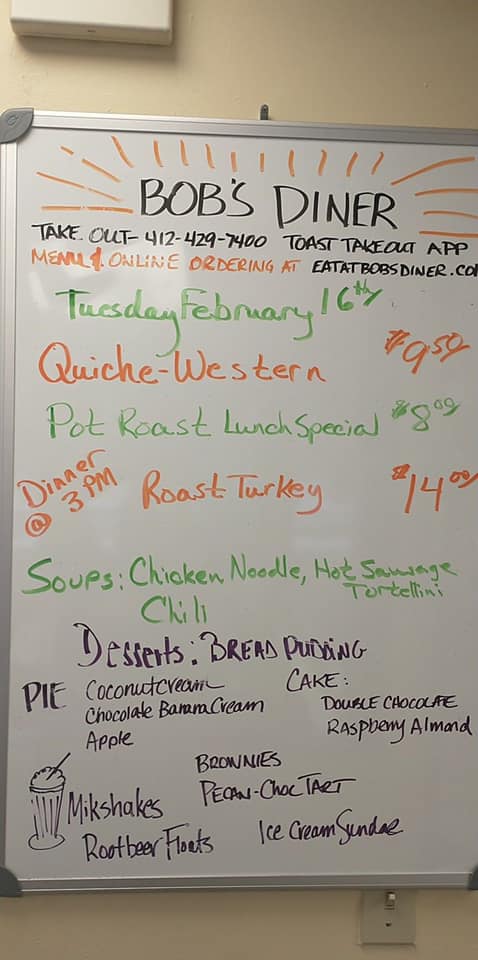 BOB'S DINER
TAKE OUT- 412-429-7400 TOAST TAKEOUT APP
MENU & ONLINE ORDERING AT EATATBOBSDINER.CO
Tuesday February 16th
Quiche-Western $9.50
Pot Roast Lunch Special $8.00
Dinner @ 3 PM Roast Turkey $14.00
Soups: Chicken Noodle, Hot Sausage
Tortellini
Chili
Desserts: BREAD PUDDING
PIE Coconut Cream CAKE:
Chocolate Banana Cream DOUBLE CHOCOLATE
Apple Raspberry Almond
BROWNIES
PECAN-CHOC TART
Mikshakes
Rootbeer Floats Ice Cream Sundae